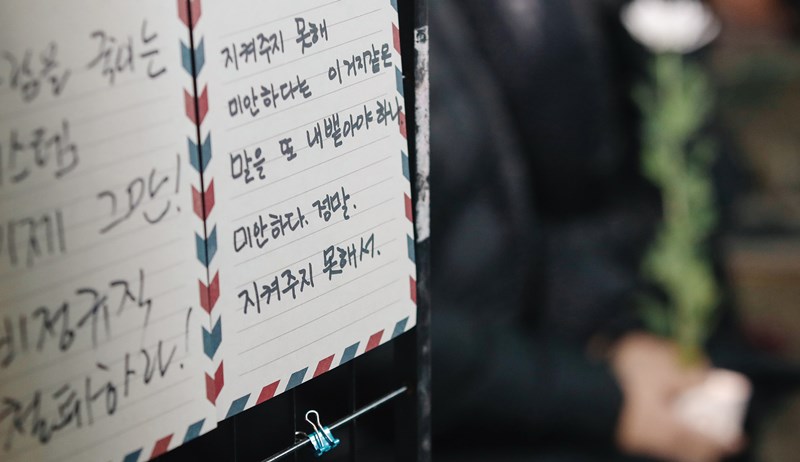 죽이는
이제 그만!
비정규직
철폐하라!
지켜주지 못해
미안하다는 이 거지같은
말을 또 내뱉아야 하나.
미안하다. 정말.
지켜주지 못해서.